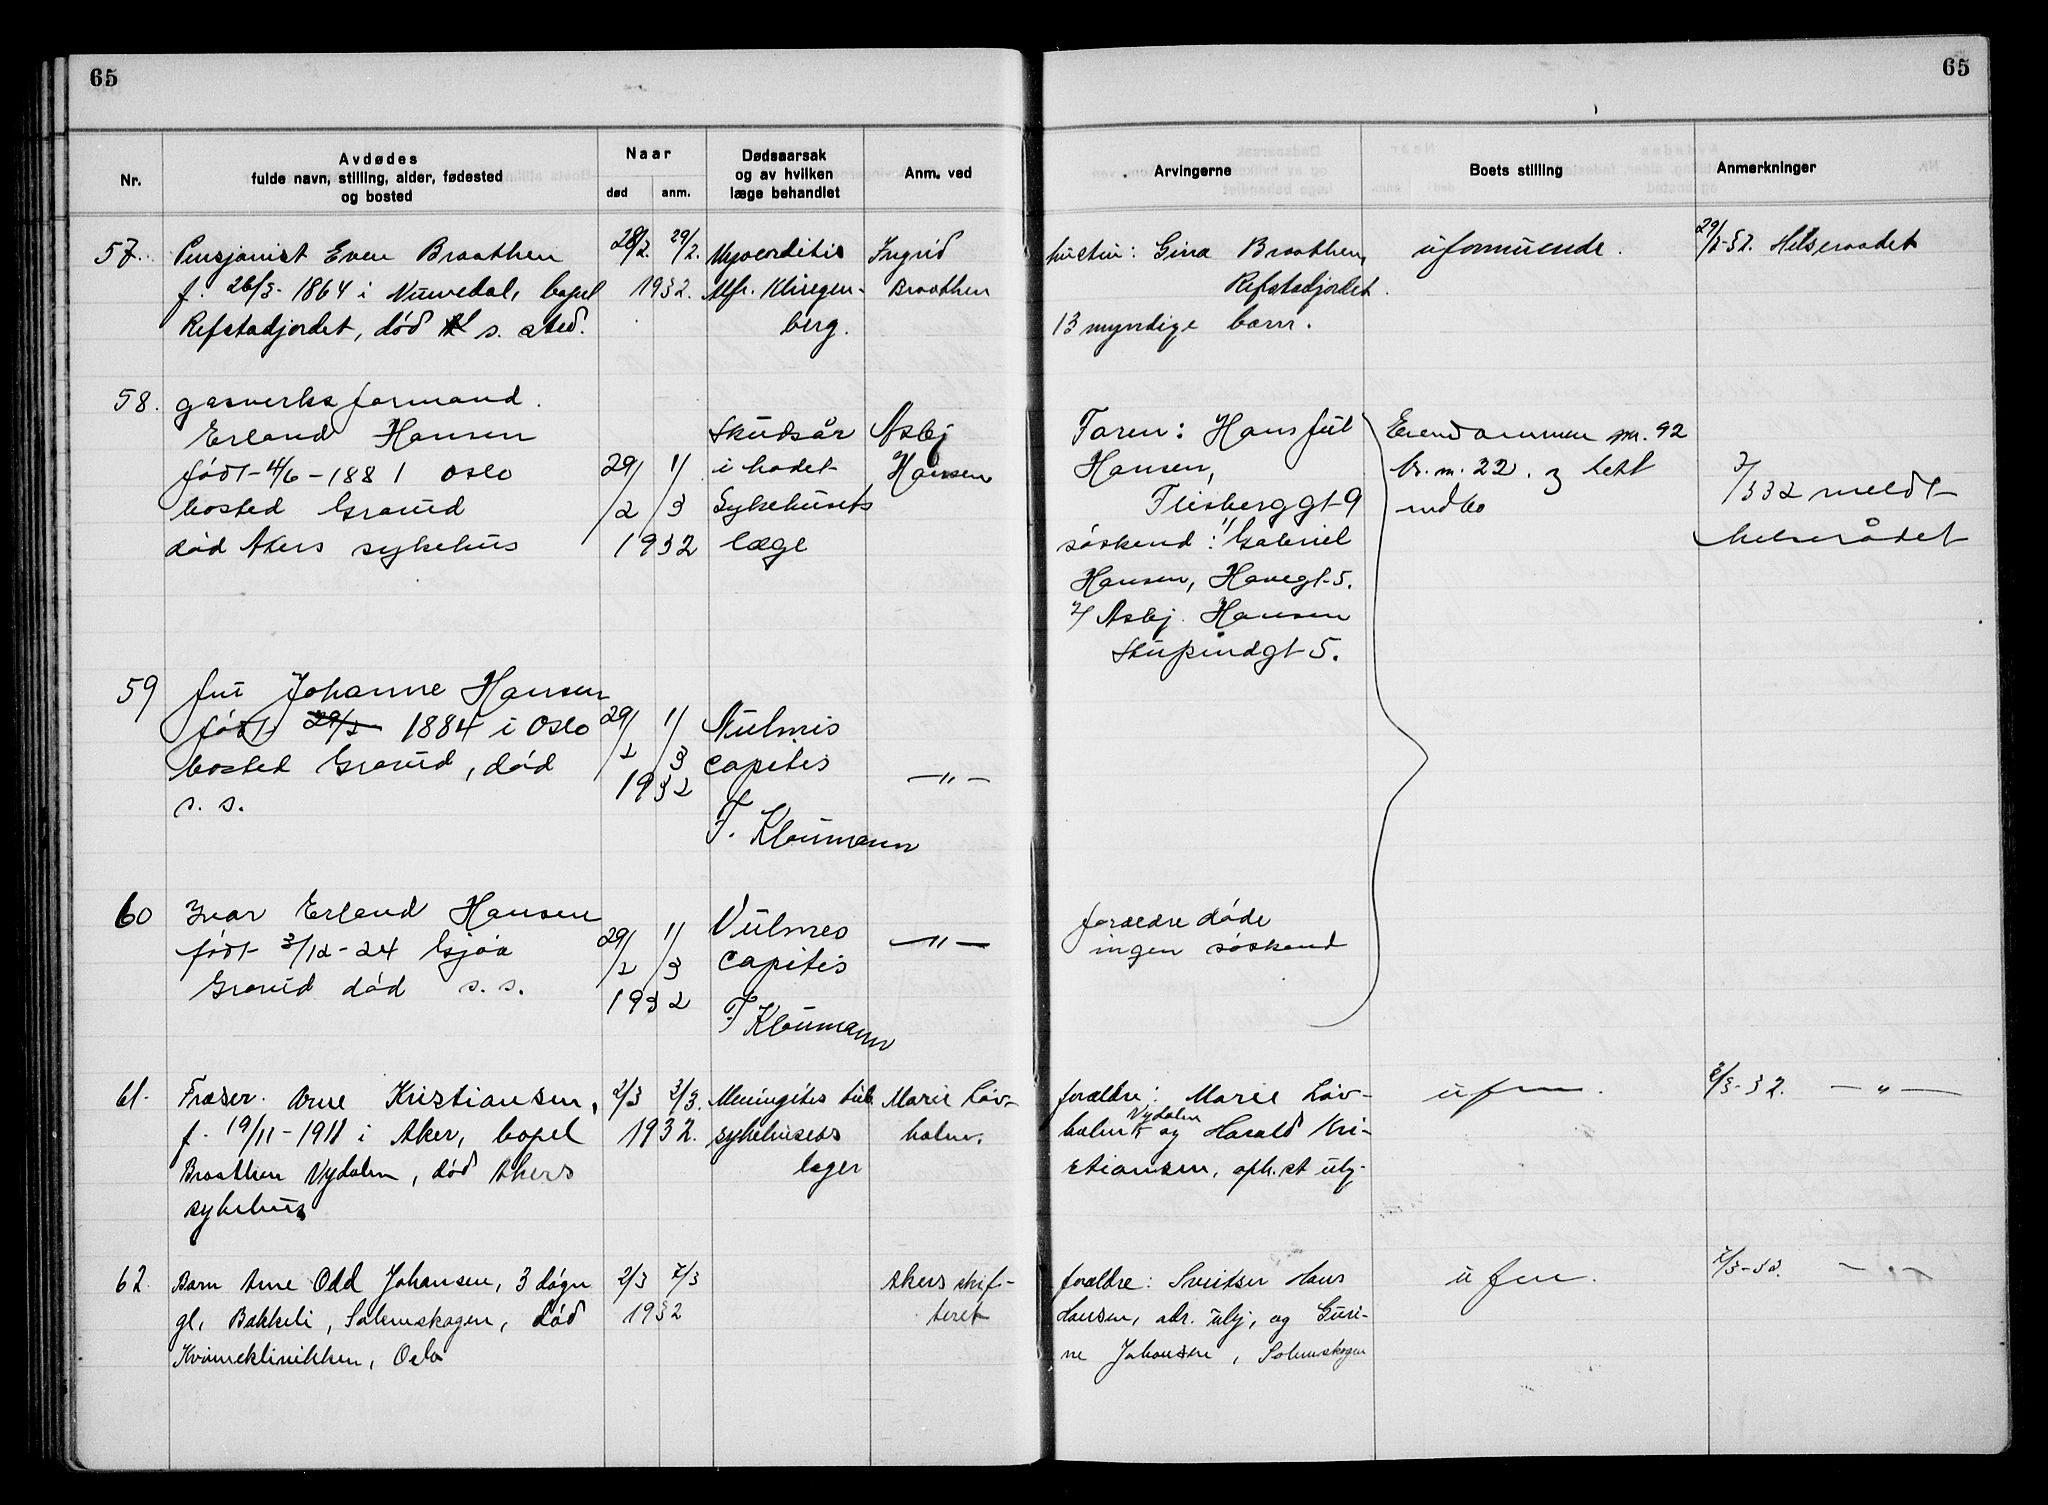 65
65
Nr.
Avdødes
fulde navn, stilling, alder, fødested
og bosted
Naar
død
anm.
Dødsaarsak
og av hvilken
læge behandlet
Anm. ved
Arvingerne
Boets stilling
Anmerkninger
57. Pensjonist Even Braathen
f. 26/3- 1864 i Numedal, bopel
Refstadjordet, død s. sted.
28/2. 29/2.
1932.
Myocarditis
Alfr. Klingen-
berg.
Ingrid
Braathen
hustru: Gina Braathen,
Refstadjordet.
13 myndige barn.
uformuende.
29/2-32. Helseraadet
58. gasverksformand.
Erland Hansen
født 4/6-1881 Oslo
bosted Grorud
død Akers sykehus
29/2 1/3
1932
Skudsår
i hodet
Sykehusets
læge
Asbj
Hansen
Faren: Hans Jul
Hansen,
gt 9
søskend: 1/ Gabriel
Hansen, Havegt 5.
2/ Asbj. Hansen
gt 5.
Eiendommen nr. 92
br. nr. 22. og litt
indbo
2/3 32 meldt
helserådet
59 fru Johanne Hansen
født 29/3 1884 i Oslo
bosted Grorud, død
s. s.
29/2 1/3
1932
Vulnus
capitis
F. Kloumann
—"—
60 Ivar Erland Hansen
født 3/12-24 Gjøa
Grorud død s. s.
29/2 1/3
1932
Vulnes
capitis
F Kloumann
—"—
foreldre døde
ingen søskend
61. Fræser Arne Kristiansen,
f. 19/11-1911 i Aker, bopel
Braathen Nydalen, død Akers
sykehus
2/3 3/3.
1932.
Meningitis tub
sykehusets
leger
Marie Løv-
holm.
forældre: Marie Løv-
holm, Nydalen og Harald Kri-
stiansen, oph. st ubj.
ufm.
2/3-32. —"—
62. Barn Arne Odd Johansen, 3 døgn
gl, Bakkeli, Solemskogen, død
Kvinneklinikken, Oslo
2/3 7/3
1932
Akers skif-
teret
forældre: Sveitser Hans
Hansen, adr. ubj, og Guri-
ne Johansen, Solemskogen
ufm.
7/3-32. —"—